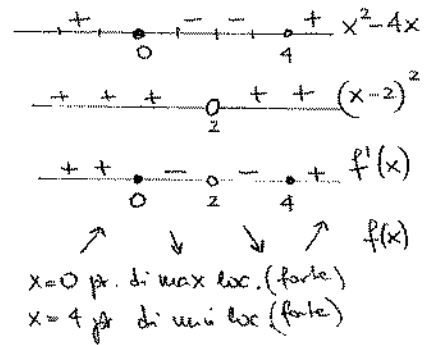 + − − − + x²-4x
0 4
+ + + + + (x-2)²
2
+ + − − + f'(x)
0 2 4
↗ ↘ ↘ ↗ f(x)
x=0 pt. di max loc. (forte)
x=4 pt di min loc (forte)